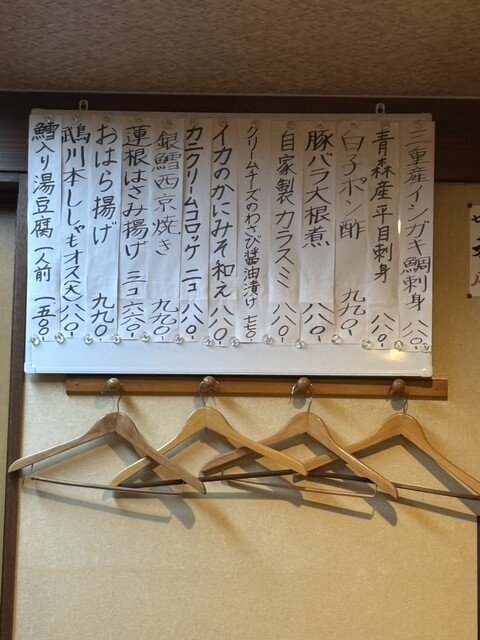 三重産インガキ鯛刺身 八八〇-
青森産平目刺身 八八〇-
白子ポン酢 九九〇-
豚バラ大根煮 八八〇-
自家製カラスミ 八八〇-
クリームチーズのわさび醤油漬け 七七〇-
イカのかにみそ和え 八八〇-
カニクリームコロッケ 二コ 八八〇-
銀鱈西京焼き 九九〇-
蓮根はさみ揚げ 三コ 六六〇-
おはら揚げ 九九〇
鵡川本ししゃもオス(大) 八八〇-
鱈入り湯豆腐 一人前 一五〇〇-